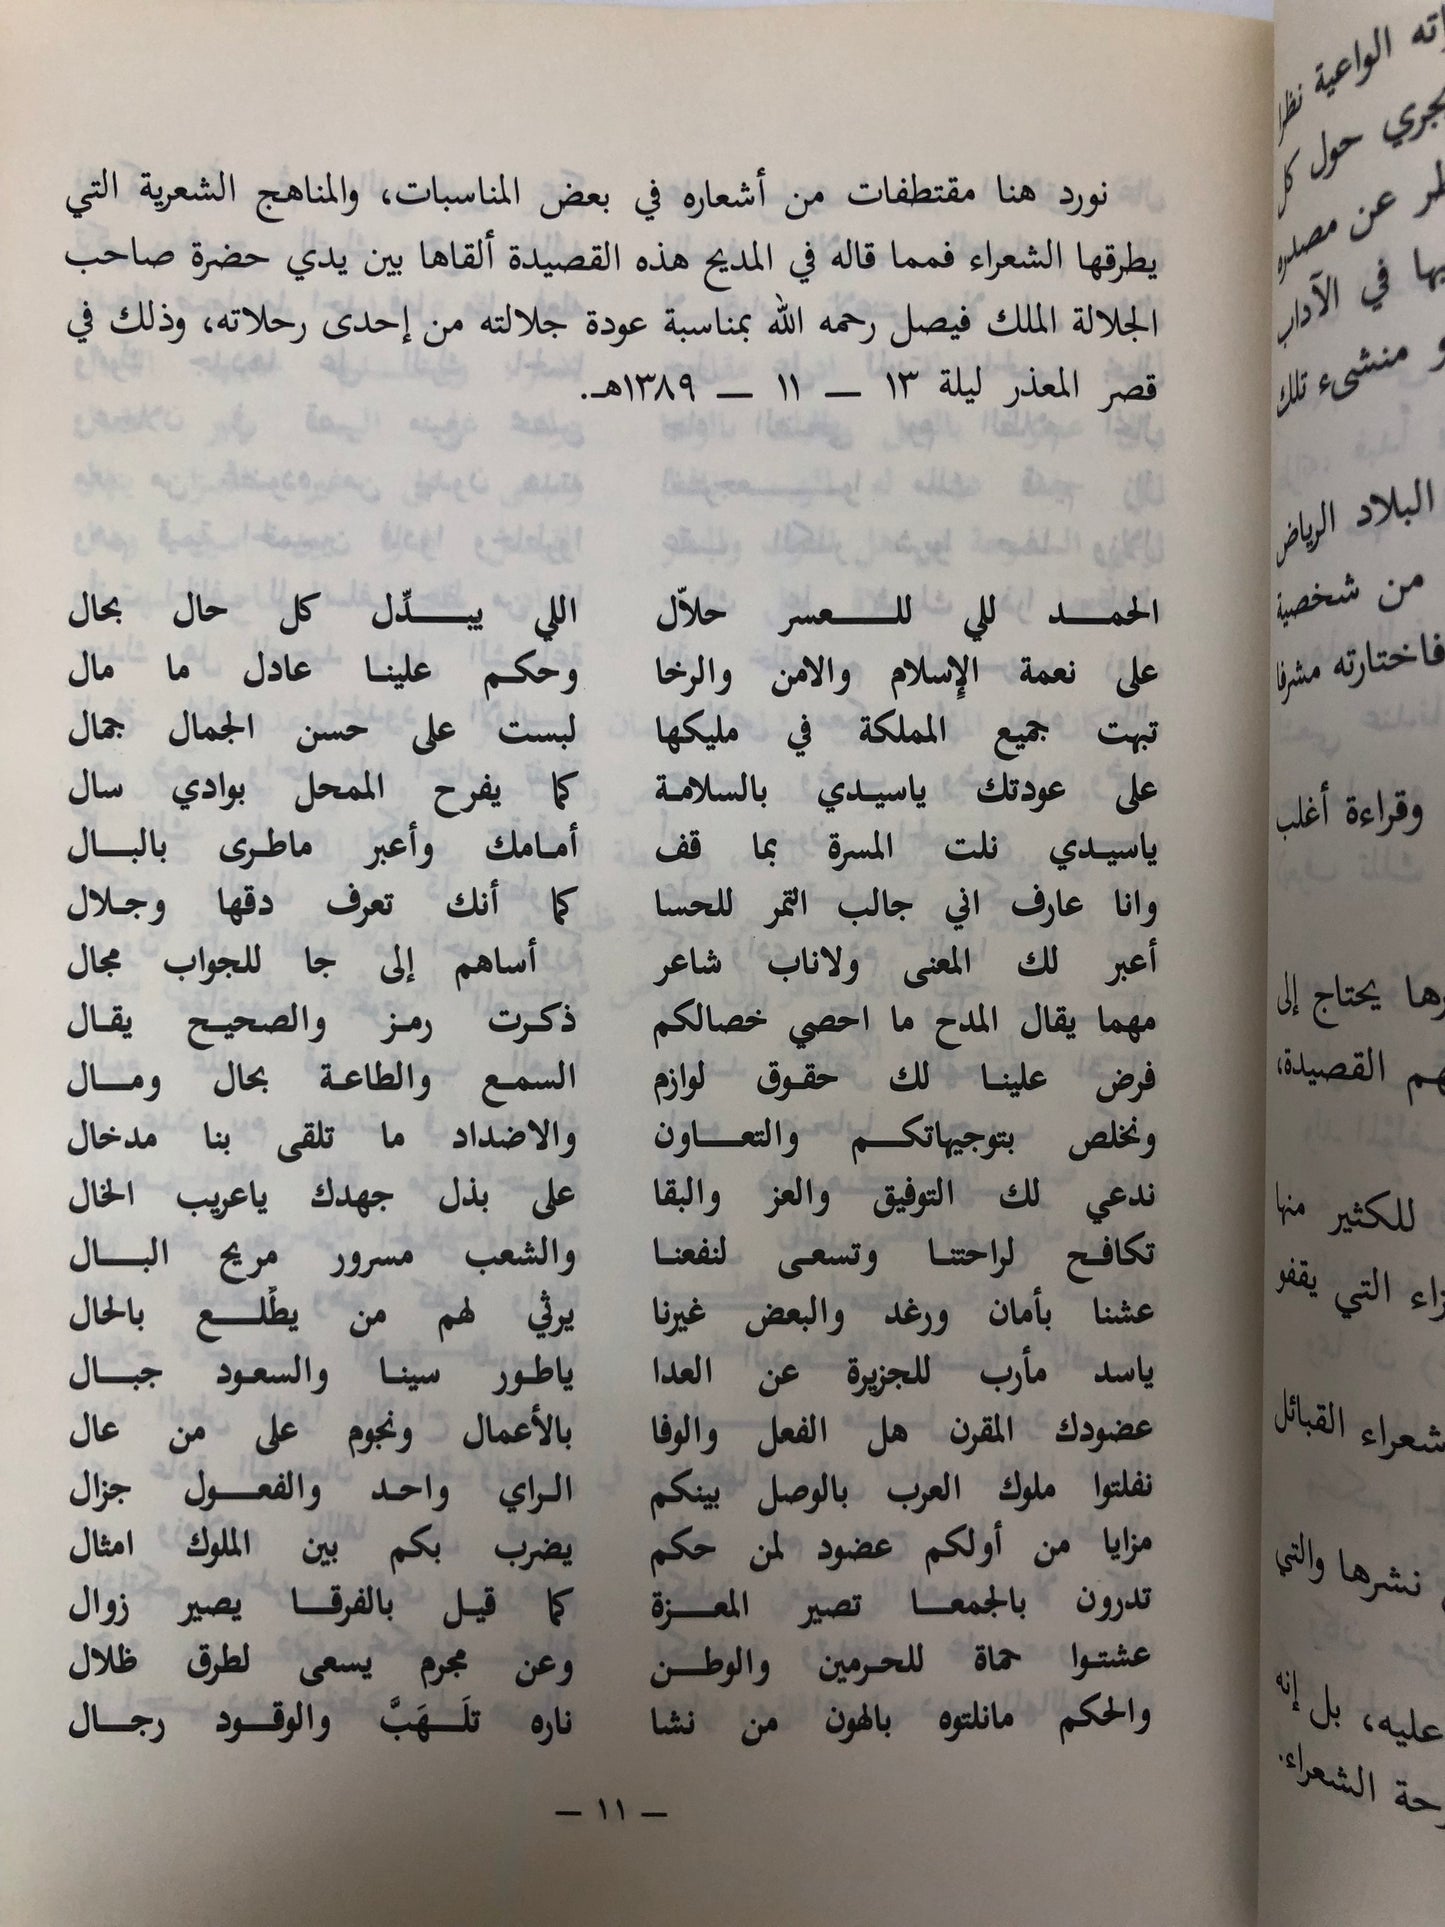 نورد هنا مقتطفات من أشعاره في بعض المناسبات، والمناهج الشعرية التي
يطرقها الشعراء فمما قاله في المديح هذه القصيدة ألقاها بين يدي حضرة صاحب
الجلالة الملك فيصل رحمه الله بمناسبة عودة جلالته من إحدى رحلاته، وذلك في
قصر المعذر ليلة ١٣ — ١١ — ١٣٨٩هـ.
الحمد للي للعسر حلاّل اللي يبدِّل كل حال بحال
على نعمة الإسلام والامن والرخا وحكم علينا عادل ما مال
تبهت جميع المملكة في مليكها لبست على حسن الجمال جمال
على عودتك ياسيدي بالسلامة كما يفرح الممحل بوادي سال
ياسيدي نلت المسرة بما قف أمامك وأعبر ماطرى بالبال
وانا عارف اني جالب التمر للحسا كما أنك تعرف دقها وجلال
أعبر لك المعنى ولاناب شاعر أساهم إلى جا للجواب مجال
مهما يقال المدح ما احصي خصالكم ذكرت رمز والصحيح يقال
فرض علينا لك حقوق لوازم السمع والطاعة بحال ومال
ونخلص بتوجيهاتكم والتعاون والاضداد ما تلقى بنا مدخال
ندعي لك التوفيق والعز والبقا على بذل جهدك ياعريب الخال
تكافح لراحتنا وتسعى لنفعنا والشعب مسرور مريح البال
عشنا بأمان ورغد والبعض غيرنا يرثي لهم من يطّلع بالحال
ياسد مأرب للجزيرة عن العدا ياطور سينا والسعود جبال
عضودك المقرن هل الفعل والوفا بالأعمال ونجوم على من عال
نفلتوا ملوك العرب بالوصل بينكم الراي واحد والفعول جزال
مزايا من أولكم عضود لمن حكم يضرب بكم بين الملوك امثال
تدرون بالجمعا تصير المعزة كما قيل بالفرقا يصير زوال
عشتوا حماة للحرمين والوطن وعن مجرم يسعى لطرق ظلال
والحكم مانلتوه بالهون من نشا ناره تلَهَبَّ والوقود رجال
— ١١ —
الواعية نظرا
حول كل
عن مصدره
في الآداب
منشىء تلك
البلاد الرياض
من شخصية
فاختارته مشرفا
وقراءة أغلب
يحتاج إلى
القصيدة،
للكثير منها
التي يقفو
القبائل
نشرها والتي
عليه، بل إنه
الشعراء.